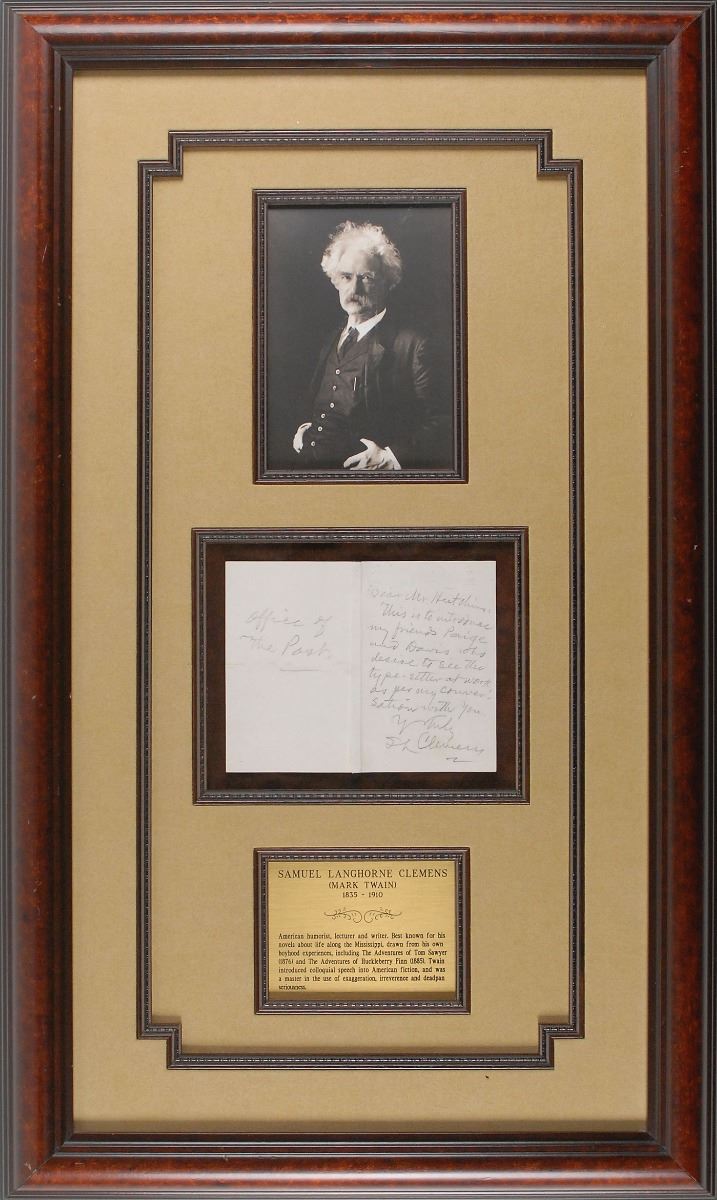 Office of
The Post
Dear Mr. Hutchins:
This is to introduce
my friends Paige
and Davis who
desire to see the
type-setter at work
as per my conver-
sation with you
Y Truly
SL Clemens
SAMUEL LANGHORNE CLEMENS
(MARK TWAIN)
1835 - 1910
American humorist, lecturer and writer. Best known for his
novels about life along the Mississippi, drawn from his own
boyhood experiences, including The Adventures of Tom Sawyer
(1876) and The Adventures of Huckleberry Finn (1885). Twain
introduced colloquial speech into American fiction, and was
a master in the use of exaggeration, irreverence and deadpan
seriousness.